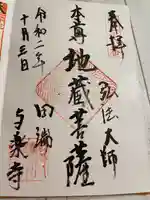 奉拝
弘法大師
本尊 地蔵菩薩
田端
与楽寺
令和二年
十月三日